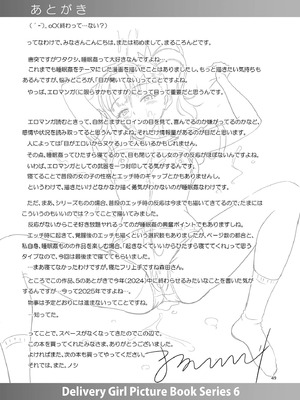 あとがき
(´ー`)。oO(終わって…ない？)
ってなわけで、みなさんこんにちは、または初めまして、まるころんどです。
唐突ですがワタクシ、睡眠姦って大好きなんですよね…。
これまでも睡眠姦をテーマにした漫画を描いたことはありましたし、もっと描きたい気持ちも
あるんですが、悩みどころが、「目が開いてない」ってことなんですよね。
やっぱ、エロマンガに（に限らずかもですが）にとって目って重要だと思うんです。
エロマンガ読むときって、自然とまずヒロインの目を見て、喜んでるのか嫌がってるのかなど、
感情や状況を読み取ってると思うんですよね。それだけ情報量があるのが目だと思います。
人によっては「目がエロいからヌケる」って人もいるかもしれません。
その点、睡眠姦ってひたすら寝てるので、目も閉じてるし女の子の反応がほぼないんですよね。
いわば、エロマンガとしての武器を一つ封印してる気がするんです。
寝てることで普段の女の子の性格とエッチ時のギャップとかもありませんし。
というわけで、描きたいけどなかなか描く勇気がわかないのが睡眠姦なわけです。
ただ、まあ、シリーズもの場合、普段のエッチ時の反応は今までも描いてきてるので、たまには
こういうのもいいのでは？ってことで描いてみました。
反応がないからこそ好き放題やれるってのが睡眠姦の興奮ポイントでもありますしね。
エッチ時に起きて、覚醒後のエッチも描くという選択肢もありましたが、ページ数の都合と、
私自身、睡眠姦ものの作品を楽しむ場合、「起きなくていいからひたすら寝ててくれ」って思う
タイプなので、今回は最後まで寝ててもらいました。
…まあ寝てなかったわけですが。寝たフリ上手ですね森田さん。
ところでこの作品、5のあとがきで今年(2024)中に終わらせるみたいなことを書いた気が
するんですが…今って2025年ですよね…
物事は予定どおりには進まないってことですね。
…知ってた。
ってことで、スペースがなくなってきたのでこの辺で。
この本を買ってくれたみなさま、ありがとうございました。
よければまた、次の本も買ってやってください。
それでは、また、ノシ
49
Delivery Girl Picture Book Series 6